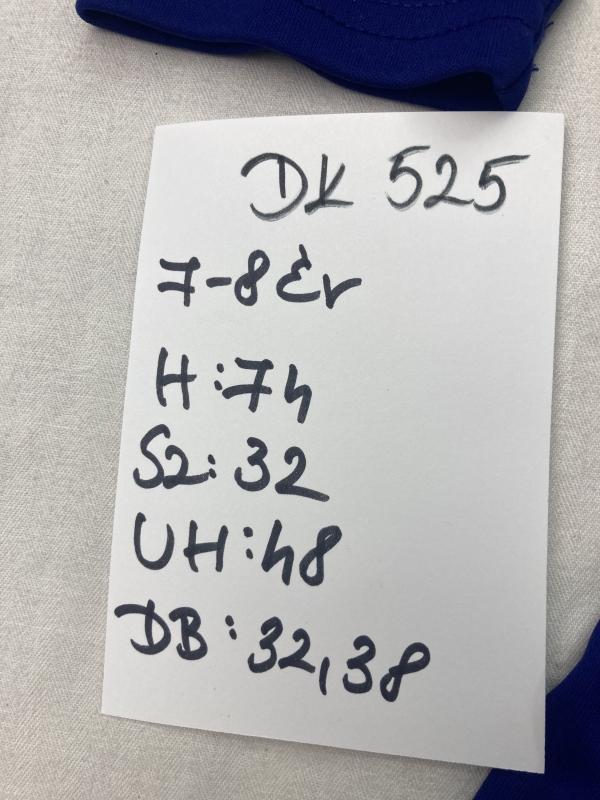 DK 525
7-8 Év
H:74
SZ:32
UH:48
DB:32,38